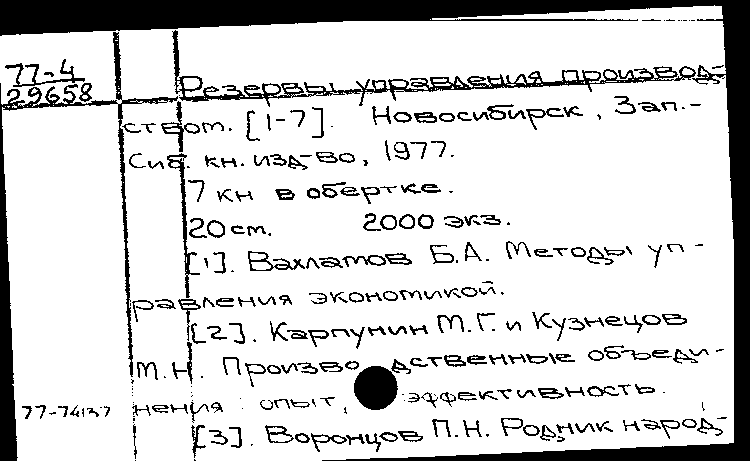 77-4
29658
Резервы управления производ-
ством. [1-7]. Новосибирск, Зап.-
Сиб. кн. изд-во, 1977.
7 кн в обертке.
20 см. 2000 экз.
[1]. Вахламов Б.А. Методы уп-
равления экономикой.
[2]. Карпунин М.Г. и Кузнецов
М.Н. Производственные объеди-
77-74137 нения: опыт, эффективность.
[3]. Воронцов П.Н. Родник народ-